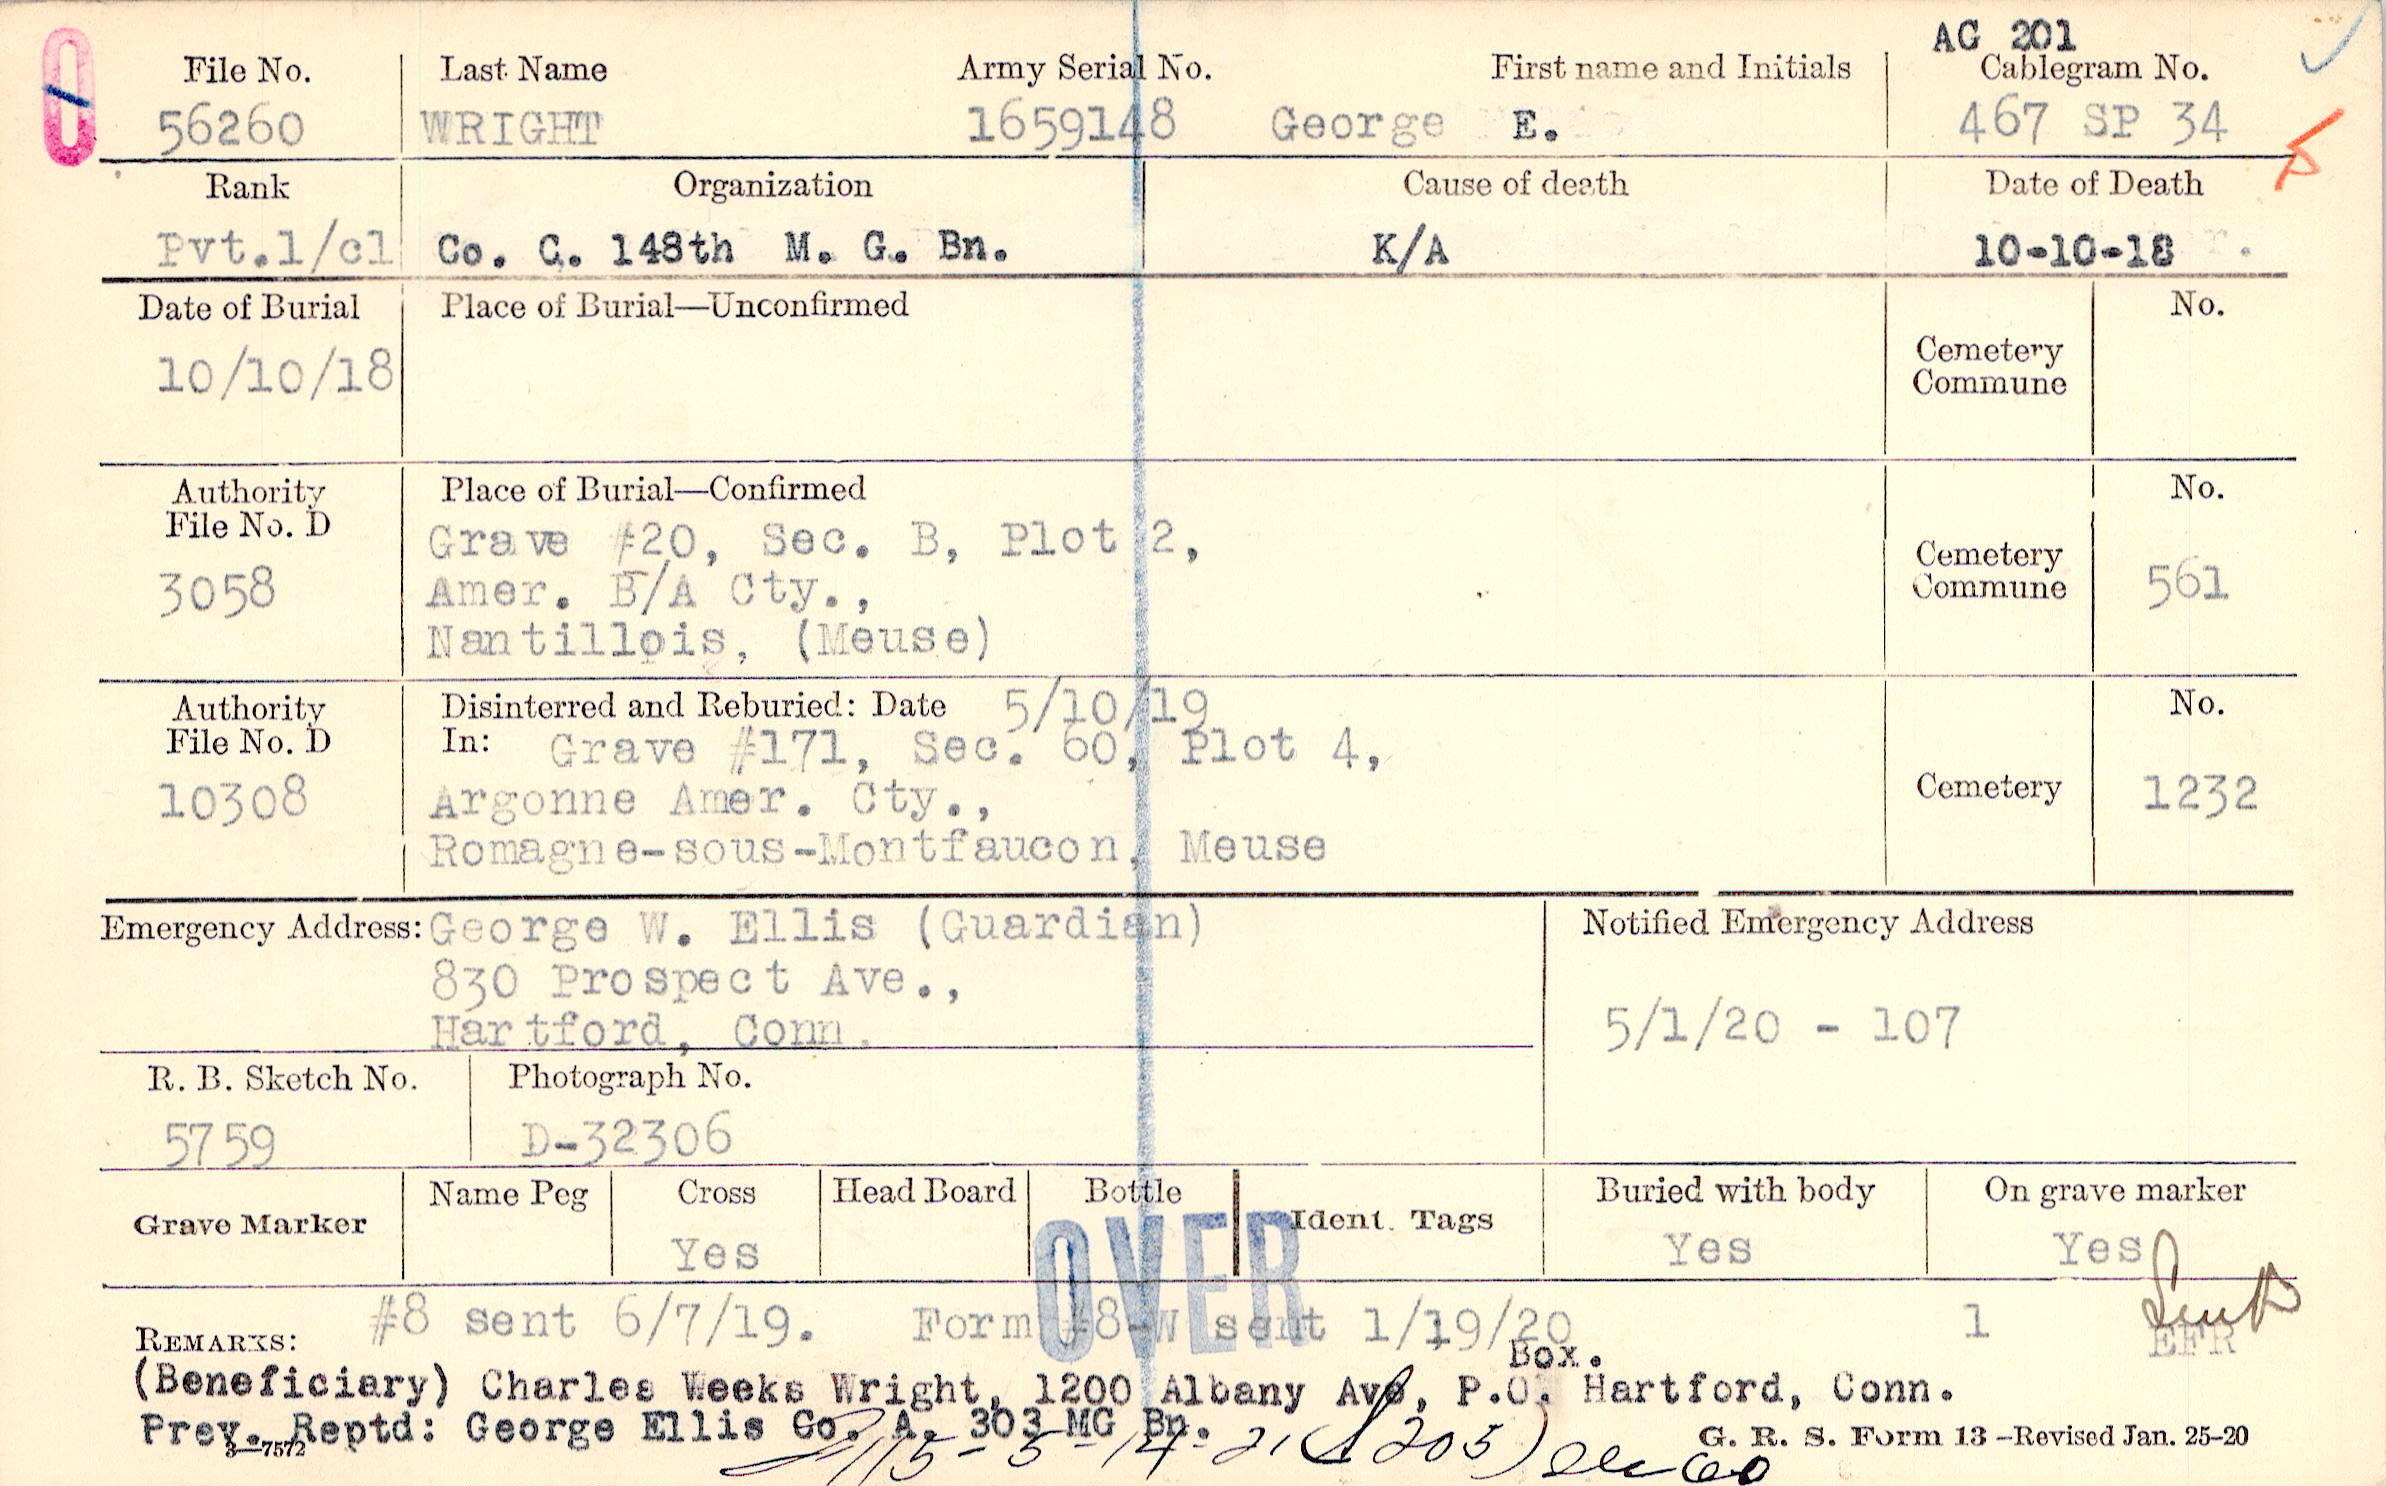 AG 201
File No. Last Name Army Serial No. First name and Initials Cablegram No.
56260 WRIGHT 1659148 George E. 467 SP 34
Rank Organization Cause of death Date of Death
Pvt.1/cl Co. C. 148th M. G. Bn. K/A 10-10-18
Date of Burial Place of Burial—Unconfirmed No.
10/10/18
Cemetery
Commune
Authority Place of Burial—Confirmed No.
File No. D
Grave #20, Sec. B, Plot 2,
Cemetery
3058 Amer. B/A Cty., Commune 561
Nantillois, (Meuse)
Authority Disinterred and Reburied: Date 5/10/19 No.
File No. D In: Grave #171, Sec. 60, Plot 4,
10308 Argonne Amer. Cty., Cemetery 1232
Romagne-sous-Montfaucon, Meuse
Emergency Address: George W. Ellis (Guardian) Notified Emergency Address
830 Prospect Ave.,
Hartford, Conn. 5/1/20 - 107
R. B. Sketch No. Photograph No.
5759 D-32306
Grave Marker Name Peg Cross Head Board Bottle Ident. Tags Buried with body On grave marker
Yes Yes Yes
OVER
REMARKS: #8 sent 6/7/19. Form #8-W sent 1/19/20 1 EFR
Box.
(Beneficiary) Charles Weeks Wright, 1200 Albany Ave, P.O. Hartford, Conn.
Prev. Reptd: George Ellis Co. A. 303 MG Bn.
3—7572 G. R. S. Form 13 —Revised Jan. 25-20
5-14-21 (205)